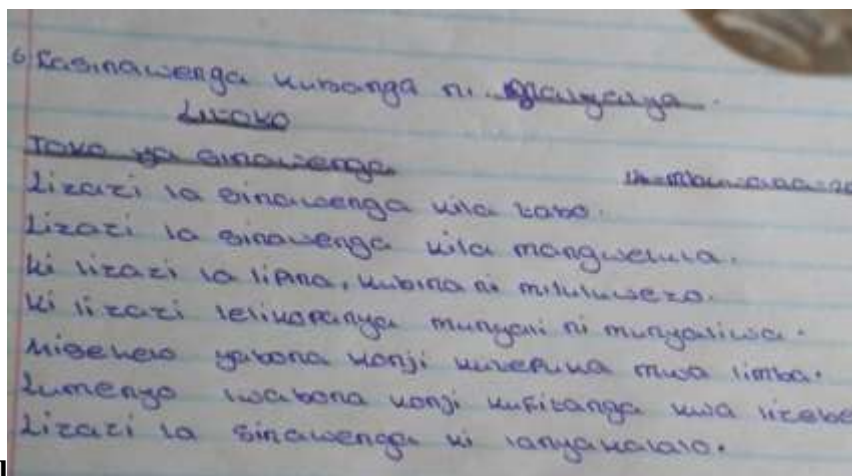 6 Kasinawenga kubanga ni
Likoko
Toko ya sinawenga
Lizazi la sinawenga kila kabo.
Lizazi la sinawenga kila mangwelula.
Ki lizazi la lipina, kubina ni mililuwezo.
Ki lizazi lelikopanya munyali ni munyaliwa.
Misekelo yabona konji kukepuka mwa limba.
Lumenyo lwabona konji kufitanga kwa lizebe
Lizazi la sinawenga ki lanyakalalo.